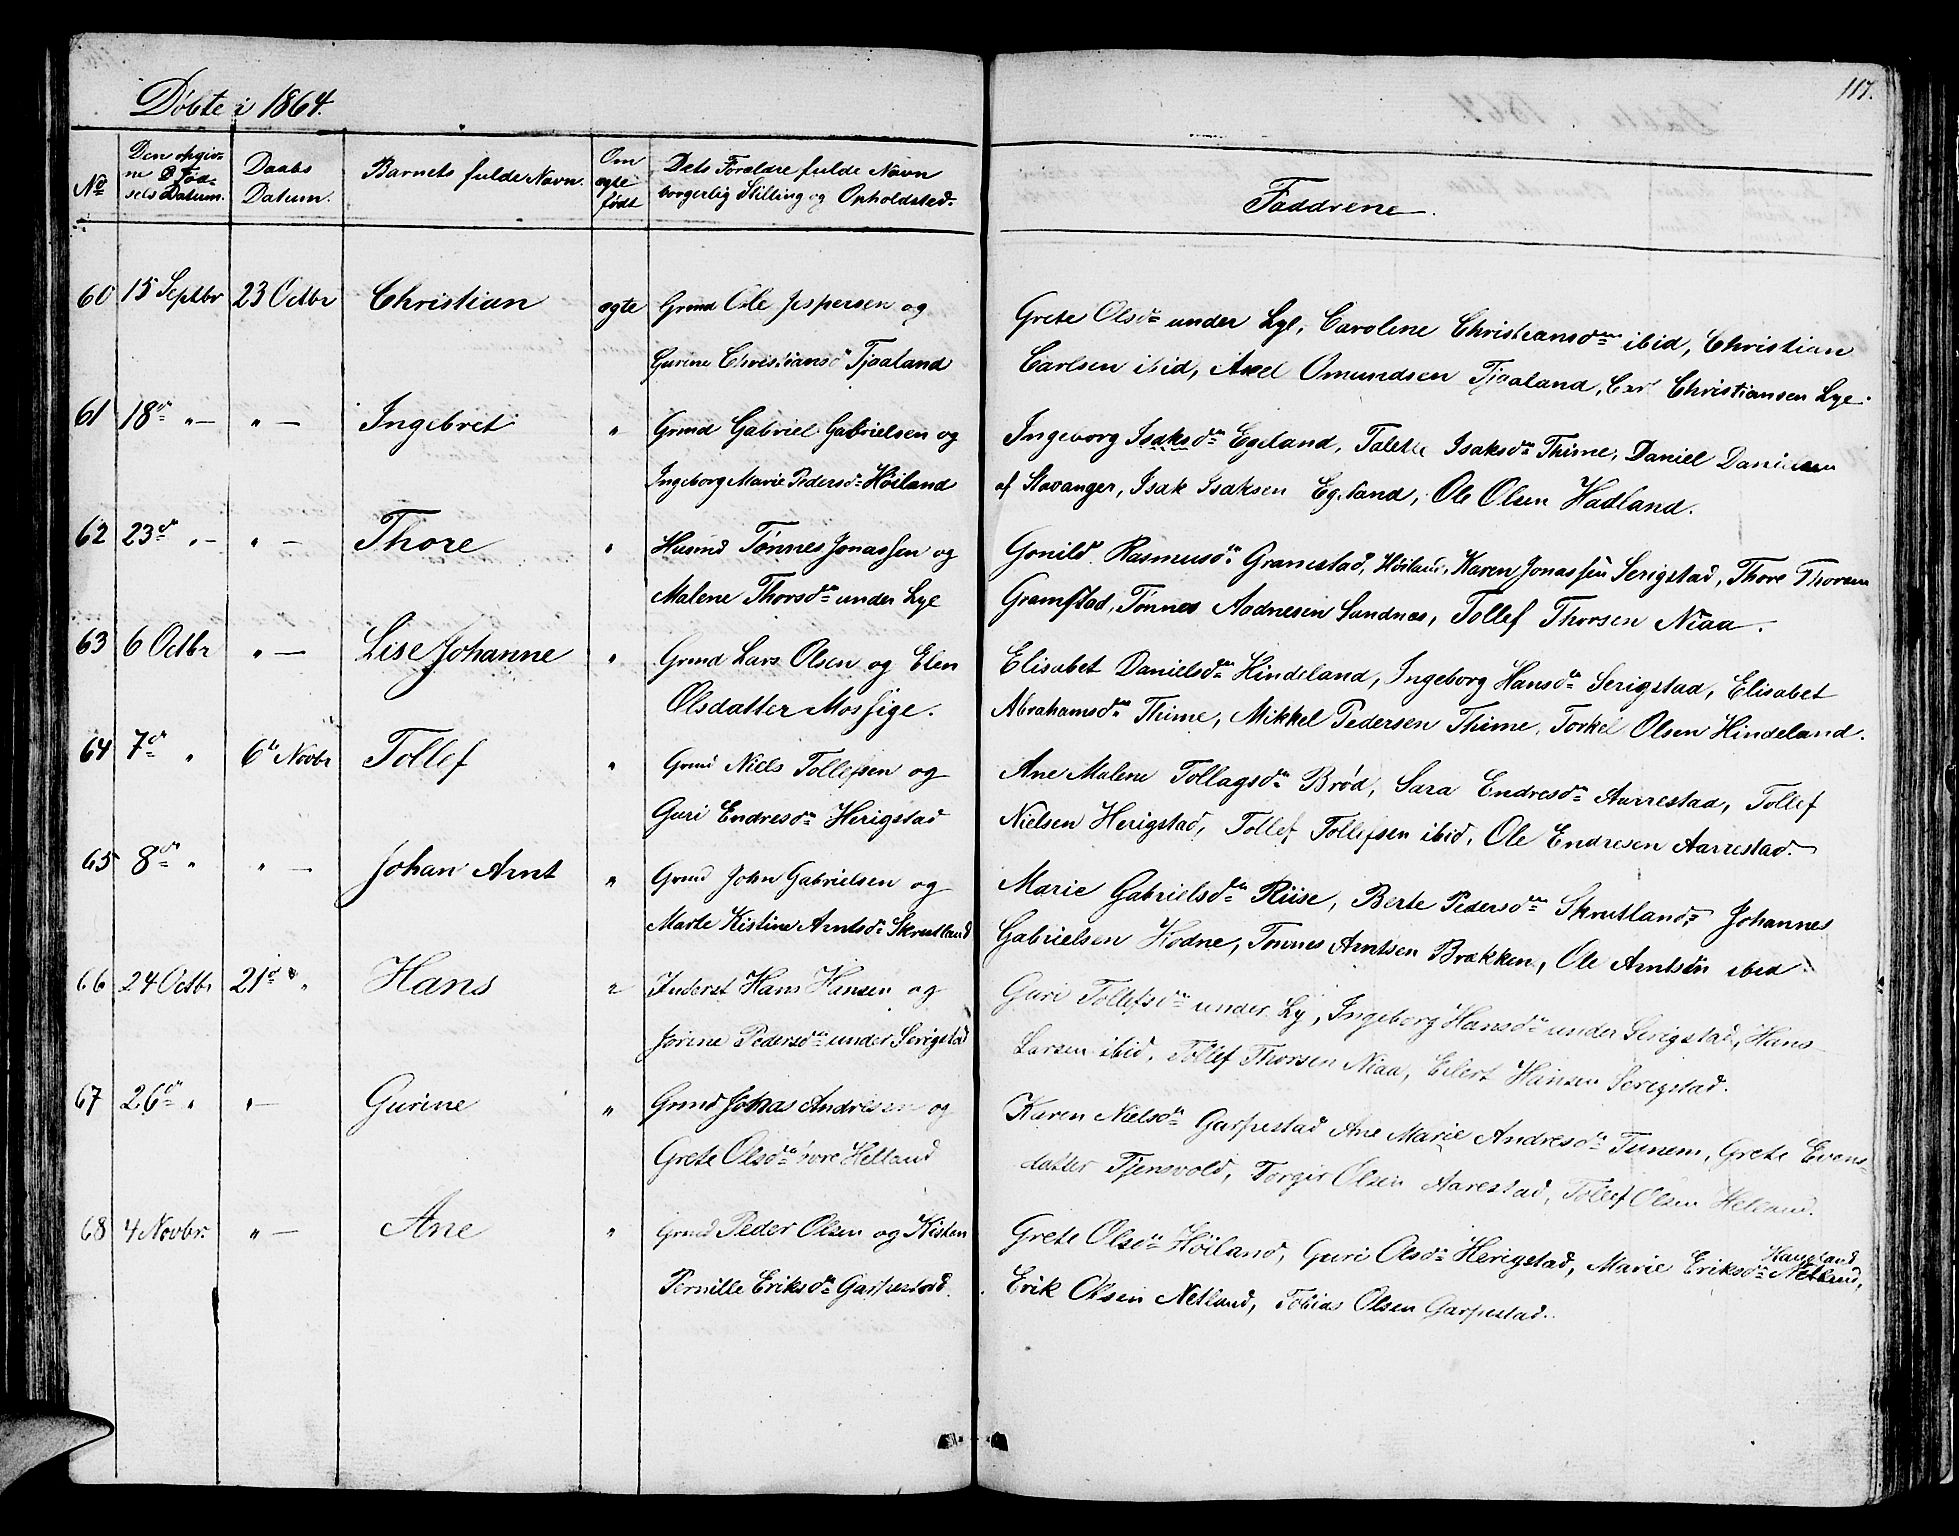 Döbte i 1864.
117.
No
Den opgiv=
ne Föd=
sels Datum.
Daabs
Datum.
Barnets fulde Navn.
Om
ægte
födt
Dets Forældre fulde Navn
borgerlig Stilling og Opholdsted.
Faddrene.
60 15 Septbr 23 Octbr Christian ægte Grmd Ole Jespersen og
Gurine Christiansd Tjaaland
Grete Olsdr under Lye, Carolene Christiansdr ibid, Christian
Carlsen ibid, Axel Omundsen Tjaaland, Carl Christiansen Lye.
61 18de " — " — Ingebret " Grmd Gabriel Gabrielsen og
Ingeborg Marie Pedersdr Höiland
Ingeborg Isaksdr Egeland, Talette Isaksdr Thime, Daniel Danielsen
af Stavanger, Isak Isaksen Egeland, Ole Olsen Hadland.
62 23de " — " — Thore " Husmd Tönnes Jonassen og
Malene Thorsdr under Lye
Gonild Rasmusdr Gramstad, Höiland, Karen Jonassen Serigstad, Thore Thorsen
Gramstad, Tönnes Aadnesen Sandnes, Tollef Thorsen Niaa.
63 6 Octbr " — Lise Johanne " Grmd Lars Olsen og Elen
Olsdatter Mossige.
Elisabet Danielsdr Hindeland, Ingeborg Hansdr Serigstad, Elisabet
Abrahamsdr Thime, Mikkel Pedersen Thime, Torkel Olsen Hindeland.
64 7de " 6te Novbr Tollef " Grmd Niels Tollefsen og
Guri Endresdr Herigstad
Ane Malene Tollagsdr Bröd, Sara Endresdr Aarrestad, Tollef
Nielsen Herigstad, Tollef Tollefsen ibid, Ole Endresen Aarrestad.
65 8de " " — Johan Arnt " Grmd John Gabrielsen og
Marte Kistine Arntsdr Skrutland
Marie Gabrielsdr Riise, Berte Pedersdr Skrutland, Johannes
Gabrielsen Hodne, Tönnes Arntsen Brækken, Ole Arntsen ibid.
66 24 Octbr 21de " Hans " Inderst Hans Hansen og
Jorine Pedersdr under Serigstad
Guri Tollefsdr under Ly, Ingeborg Hansdr under Serigstad, Hans
Larsen ibid, Tollef Thorsen Niaa, Eilert Hansen Serigstad.
67 26de " " — Gurine " Grmd Johas Andresen og
Grete Olsdr Helland
Karen Nielsdr Garpestad Ane Marie Andresdr Tunem, Grete Evens=
datter Tjensvold, Torger Olsen Aarestad, Tollef Olsen Helland.
68 4 Novbr. " — Ane " Grmd Peder Olsen og Kisten
Pernille Eriksdr Garpestad.
Grete Olsdr Höiland, Guri Olsdr Herigstad, Marie Eriksdr Netland,
Haugland
Erik Olsen Netland, Tobias Olsen Garpestad.